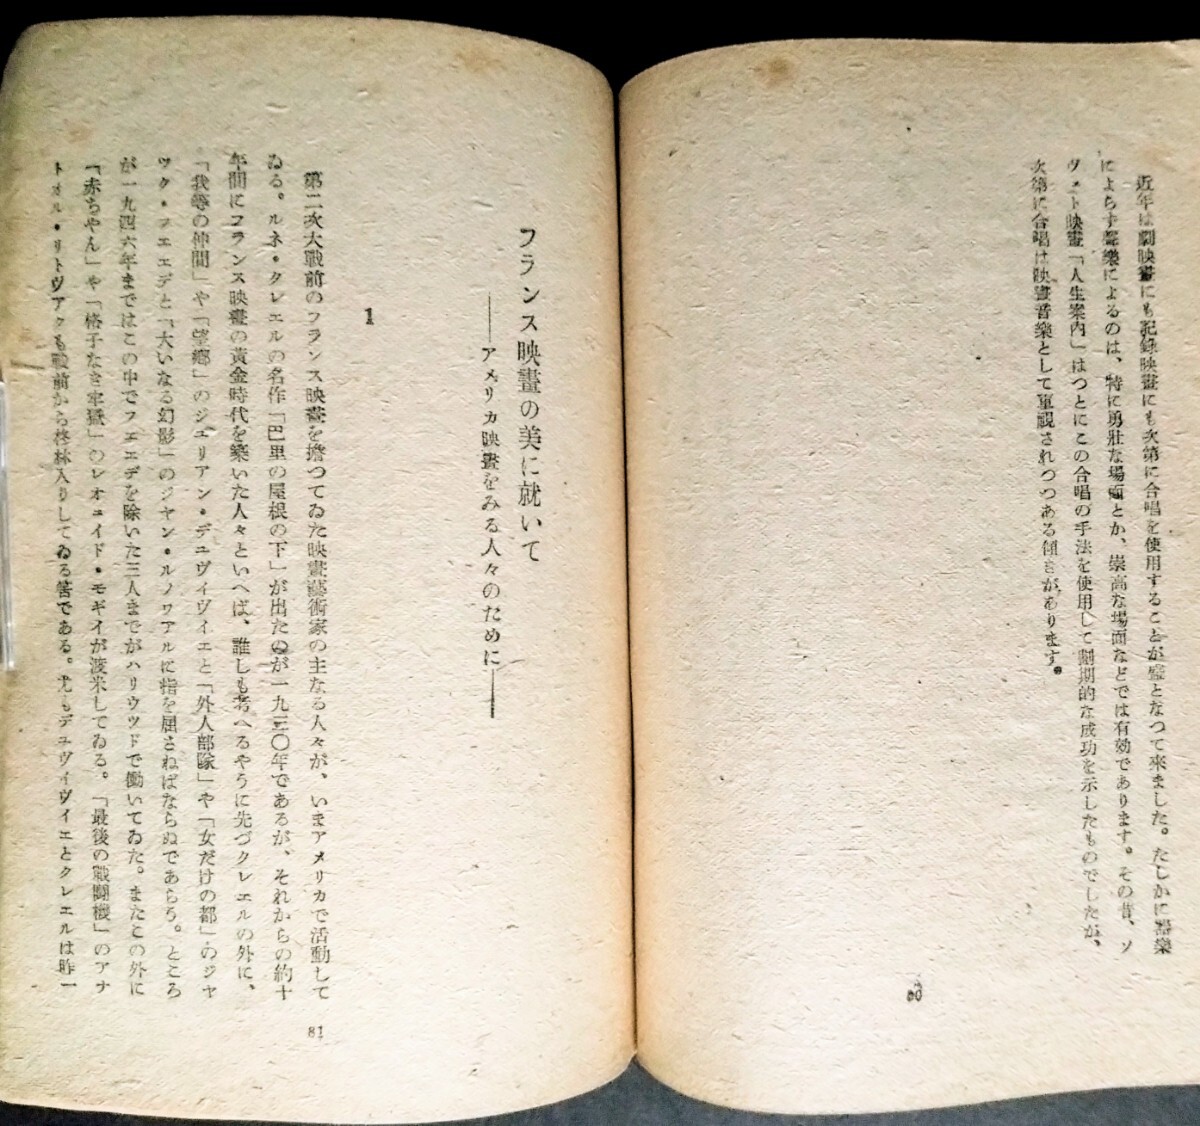 近年は劇映畫にも記録映畫にも次第に合唱を使用することが盛となつて來ました。たしかに器樂
によらず聲樂によるのは、特に勇壯な場面とか、崇高な場面などでは有効であります。その昔、ソ
ヴェト映畫「人生案内」はつとにこの合唱の手法を使用して劃期的な成功を示したものでしたが、
次第に合唱は映畫音樂として重視されつつある傾きがあります。
フランス映畫の美に就いて
——アメリカ映畫をみる人々のために——
1
第二次大戰前のフランス映畫を擔つてゐた映畫藝術家の主なる人々が、いまアメリカで活動して
ゐる。ルネ・クレエルの名作「巴里の屋根の下」が出たのが一九三〇年であるが、それからの約十
年間にフランス映畫の黄金時代を築いた人々といへば、誰しも考へるやうに先づクレエルの外に、
「我等の仲間」や「望郷」のジュリアン・デュヴィヴィエと「外人部隊」や「女だけの都」のジャ
ック・フェエデと「大いなる幻影」のジャン・ルノワアルに指を屈さねばならぬであらう。ところ
が一九四六年まではこの中でフェエデを除いた三人までがハリウッドで働いてゐた。またこの外に
「赤ちやん」や「格子なき牢獄」のレオニイド・モギイが渡米してゐる。「最後の戰鬪機」のアナ
トオル・リトヴァクも戰前から柊林入りしてゐる筈である。尤もデュヴィヴィエとクレエルは昨一
81